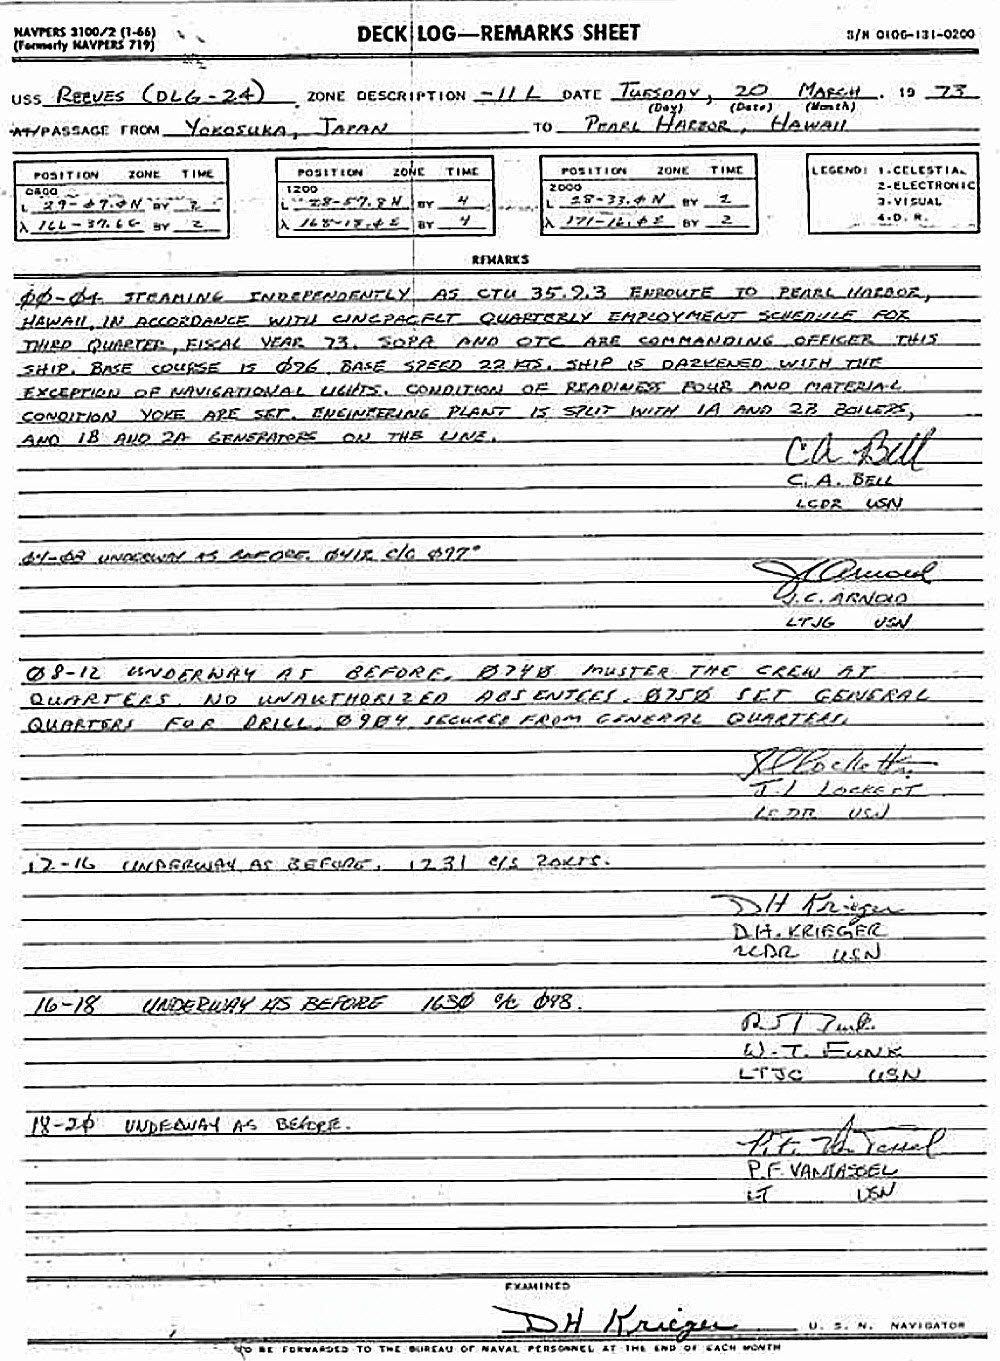 NAVPERS 3100/2 (1-66)
(Formerly NAVPERS 719)
DECK LOG—REMARKS SHEET
S/N 0106-131-0200
USS REEVES (DLG-24) ZONE DESCRIPTION -11 L DATE TUESDAY, 20 MARCH, 19 73
(Day) (Date) (Month)
AT/PASSAGE FROM YOKOSUKA, JAPAN TO PEARL HARBOR, HAWAII
POSITION ZONE TIME
0800
L BY 2
λ BY 2
POSITION ZONE TIME
1200
L 28-57.8N BY 4
λ 168-18.φE BY 4
POSITION ZONE TIME
2000
L 28-33.φN BY 2
λ 171-16.φE BY 2
LEGEND: 1-CELESTIAL
2-ELECTRONIC
3-VISUAL
4-D. R.
REMARKS
φφ-φ4 STEAMING INDEPENDENTLY AS CTU 35.9.3 ENROUTE TO PEARL HARBOR,
HAWAII, IN ACCORDANCE WITH CINCPACFLT QUARTERLY EMPLOYMENT SCHEDULE FOR
THIRD QUARTER, FISCAL YEAR 73. SOPA AND OTC ARE COMMANDING OFFICER THIS
SHIP. BASE COURSE IS φ96 BASE SPEED 22 KTS. SHIP IS DARKENED WITH THE
EXCEPTION OF NAVIGATIONAL LIGHTS. CONDITION OF READINESS FOUR AND MATERIAL
CONDITION YOKE ARE SET. ENGINEERING PLANT IS SPLIT WITH 1A AND 2B BOILERS,
AND 1B AND 2A GENERATORS ON THE LINE.
C A Bell
C. A. BELL
LCDR USN
φ4-φ8 UNDERWAY AS BEFORE. φ418 C/C φ97°
J C Arnold
J. C. ARNOLD
LTJG USN
φ8-12 UNDERWAY AS BEFORE. φ74φ MUSTER THE CREW AT
QUARTERS. NO UNAUTHORIZED ABSENTEES. φ75φ SET GENERAL
QUARTERS FOR DRILL. φ9φ4 SECURED FROM GENERAL QUARTERS.
J L Lockett
J. L LOCKETT
LCDR USN
12-16 UNDERWAY AS BEFORE. 1231 C/S 20KTS.
DH Krieger
D.H. KRIEGER
LCDR USN
16-18 UNDERWAY AS BEFORE 165φ C/C φ98.
W. T. FUNK
LTJG USN
18-2φ UNDERWAY AS BEFORE.
P.F. VanTassel
P.F. VANTASSEL
LT USN
EXAMINED
DH Krieger U. S. N. NAVIGATOR
TO BE FORWARDED TO THE BUREAU OF NAVAL PERSONNEL AT THE END OF EACH MONTH